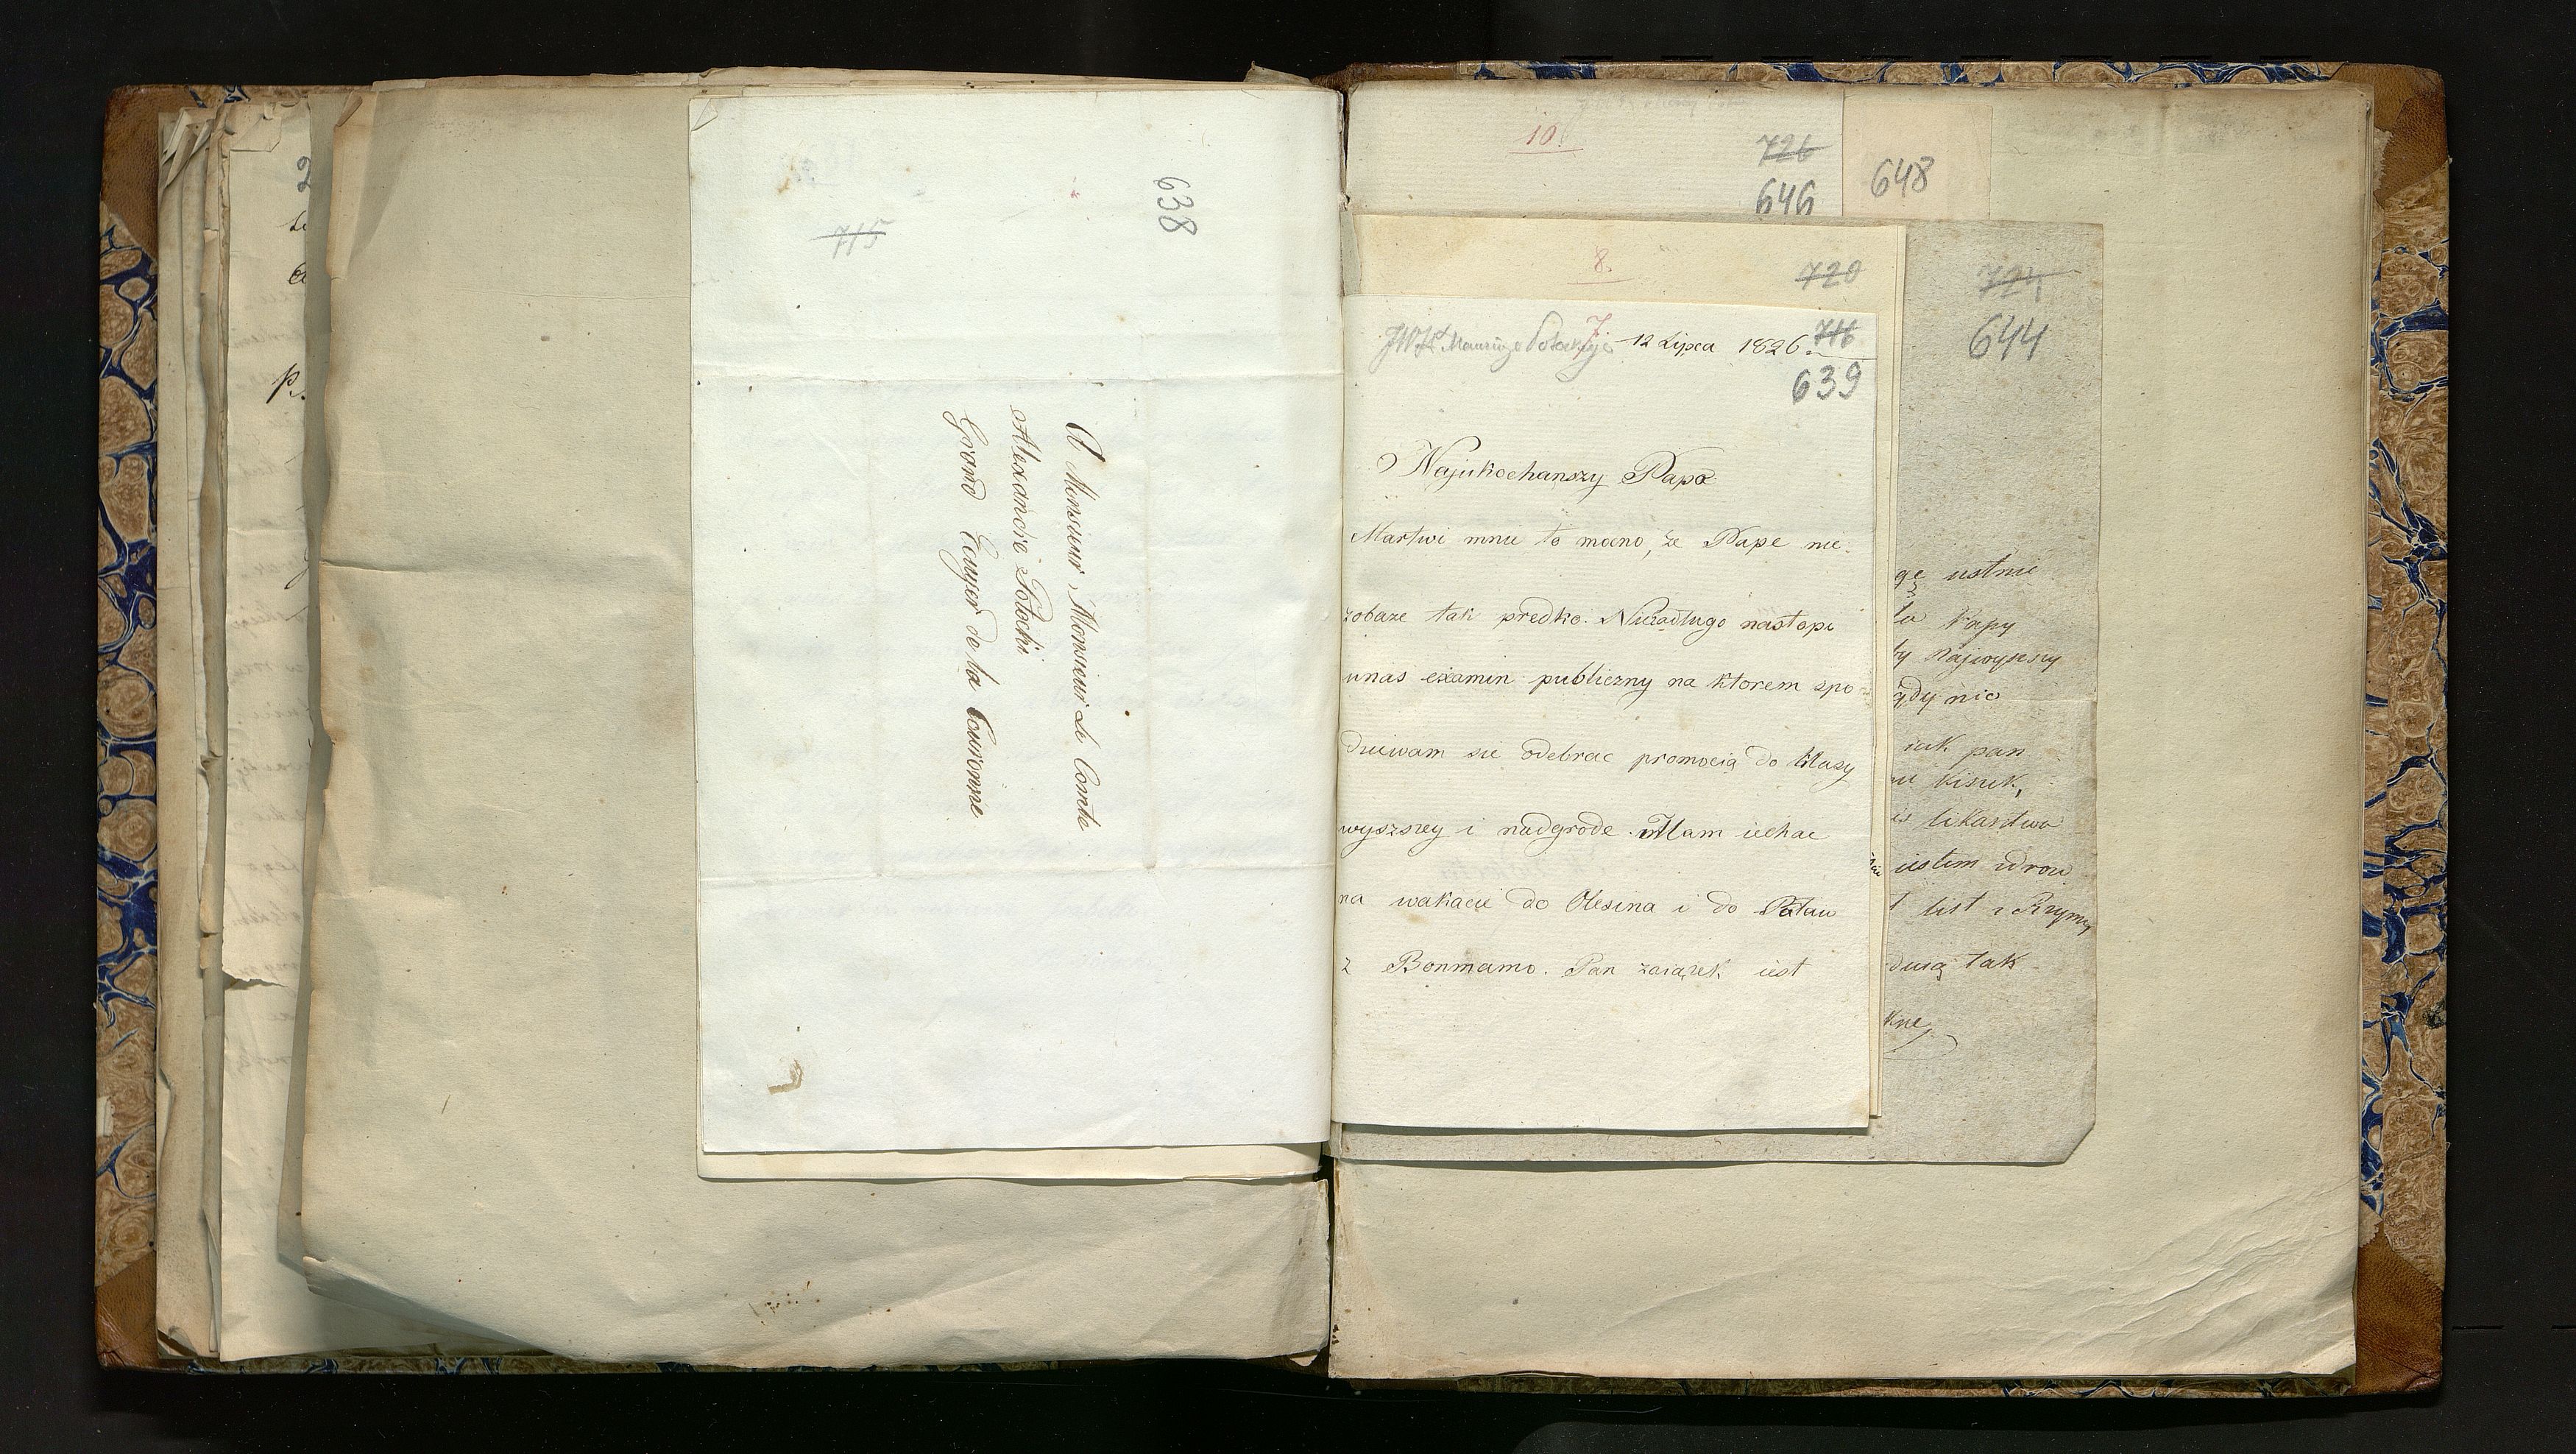 638
715
A Monsieur, Monsieur Le Comte
Alexandre Potocki
Grand Ecuyer de la Couronne
2
P.
10.
726
646
648
8.
720
724
644
JWH Maurycego Potockiego 7. 12 Lipca 1826.
716
639
Najukochanszy Papo
Martwi mnie to mocno, że Pape nie-
zobacze tak prędko. Niezadługo nastopi
unas examin publiczny na ktorem spo-
dziewam sie odebrac promocią do klasy
wyszszey i nadgrode. Mam iechac
na wakacie do Olesina i do Puław
z Bonmamo. Pan zaiązek iest
gę ustnie
la Kapy
by Najwyszy
gdy nic
iak pan
likarstwo
iestem zdrow
list z Krymu
duią tak
kne